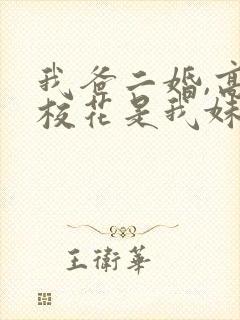 我爸二婚,高
校花是我妹
王衛華